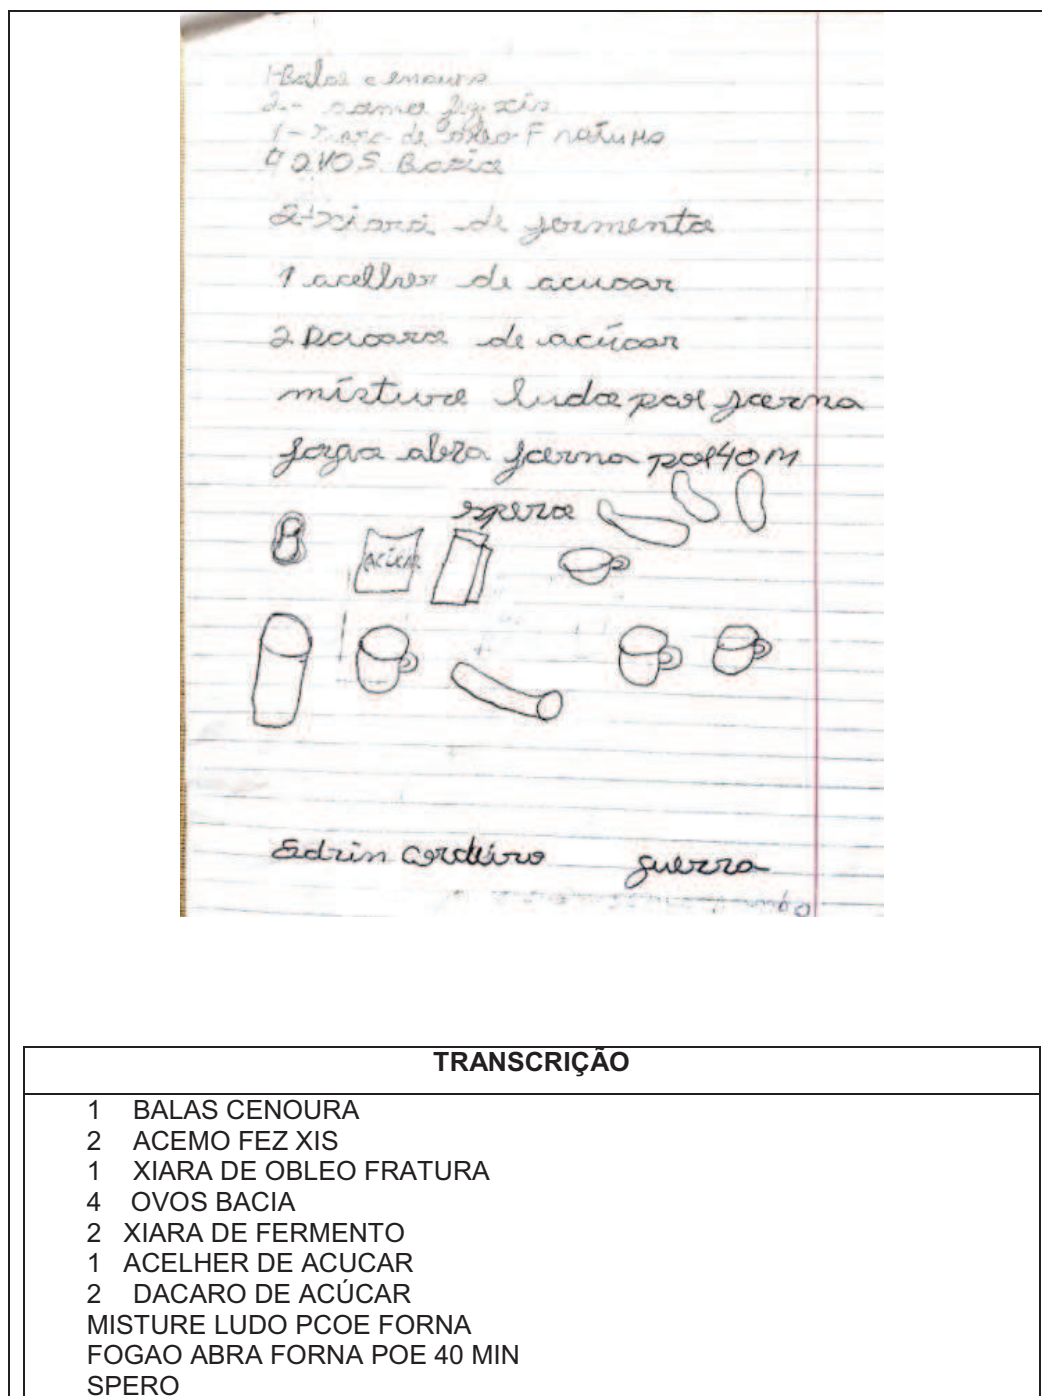 1-Balas cenoura
2-
1- de obleo F ratura
4 OVOS Bacia
2-xiara de formenta
1 acelher de acucar
2 Dacara de acúcar
misture ludo poe forna
fogão abra forna poe 40 m
spera
ACÚCAR
Edrin cordeiro guerra
TRANSCRIÇÃO
1 BALAS CENOURA
2 ACEMO FEZ XIS
1 XIARA DE OBLEO FRATURA
4 OVOS BACIA
2 XIARA DE FERMENTO
1 ACELHER DE ACUCAR
2 DACARO DE ACÚCAR
MISTURE LUDO PCOE FORNA
FOGAO ABRA FORNA POE 40 MIN
SPERO